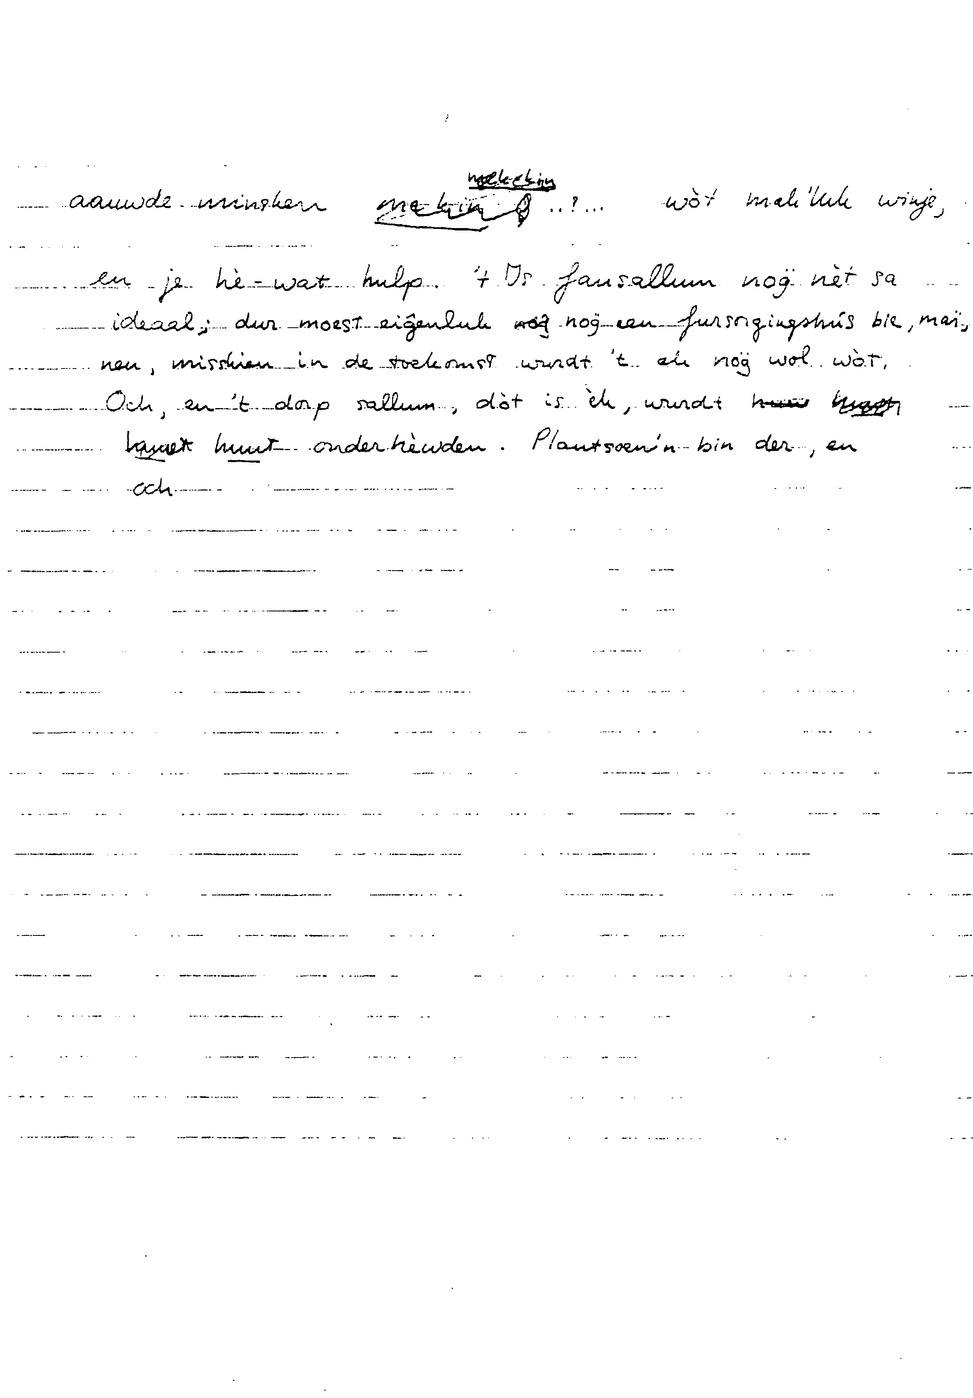 aauwde minsken ..?... wòt mak'luk winje,
en je hè wat hulp. 't Is fansallum nog nèt sa
ideaal; dur moest eigenluk nog een fursorgingshús bie, mar,
nou, misskien in de toekomst wurdt 't ek nog wol wòt.
Och, en 't dorp sallum, dòt is èk, wurdt
huut onderhèwden. Plantsoen'n bin der, en
och